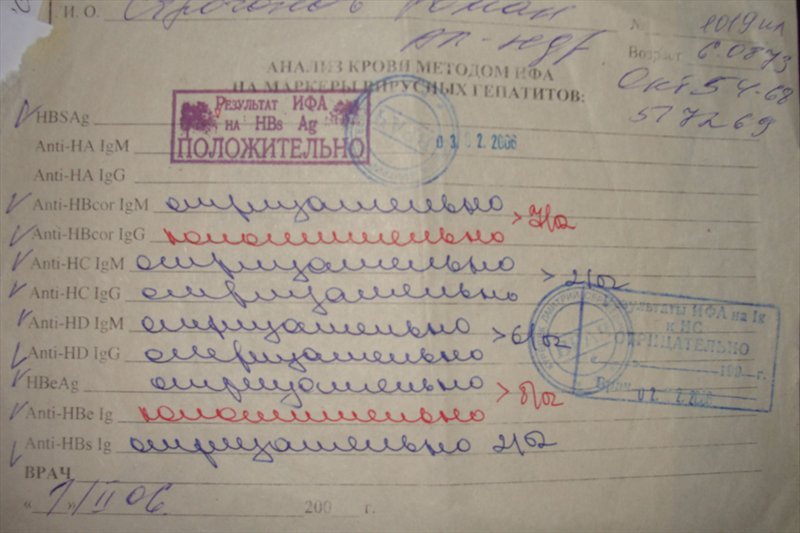 И. О. Роман
№ 1019 ил
Возраст
АНАЛИЗ КРОВИ МЕТОДОМ ИФА
НА МАРКЕРЫ ВИРУСНЫХ ГЕПАТИТОВ:
517269
РЕЗУЛЬТАТ ИФА
НА HBs Ag
ПОЛОЖИТЕЛЬНО
HBSAg
Anti-HA IgM
Anti-HA IgG
Anti-HBcor IgM отрицательно
Anti-HBcor IgG положительно
Anti-HC IgM отрицательно
Anti-HC IgG отрицательно
Anti-HD IgM отрицательно
Anti-HD IgG отрицательно
HBeAg отрицательно
Anti-HBe Ig положительно
Anti-HBs Ig отрицательно 2/02
Результаты ИФА на Ig
к HC
ОТРИЦАТЕЛЬНО
Врач
ВРАЧ
200 г.